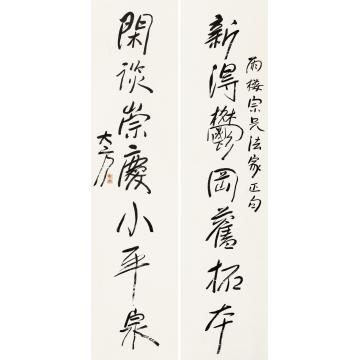 雨楼宗兄法家正句
新得鬱岡舊拓本
閑談崇慶小平泉
大方